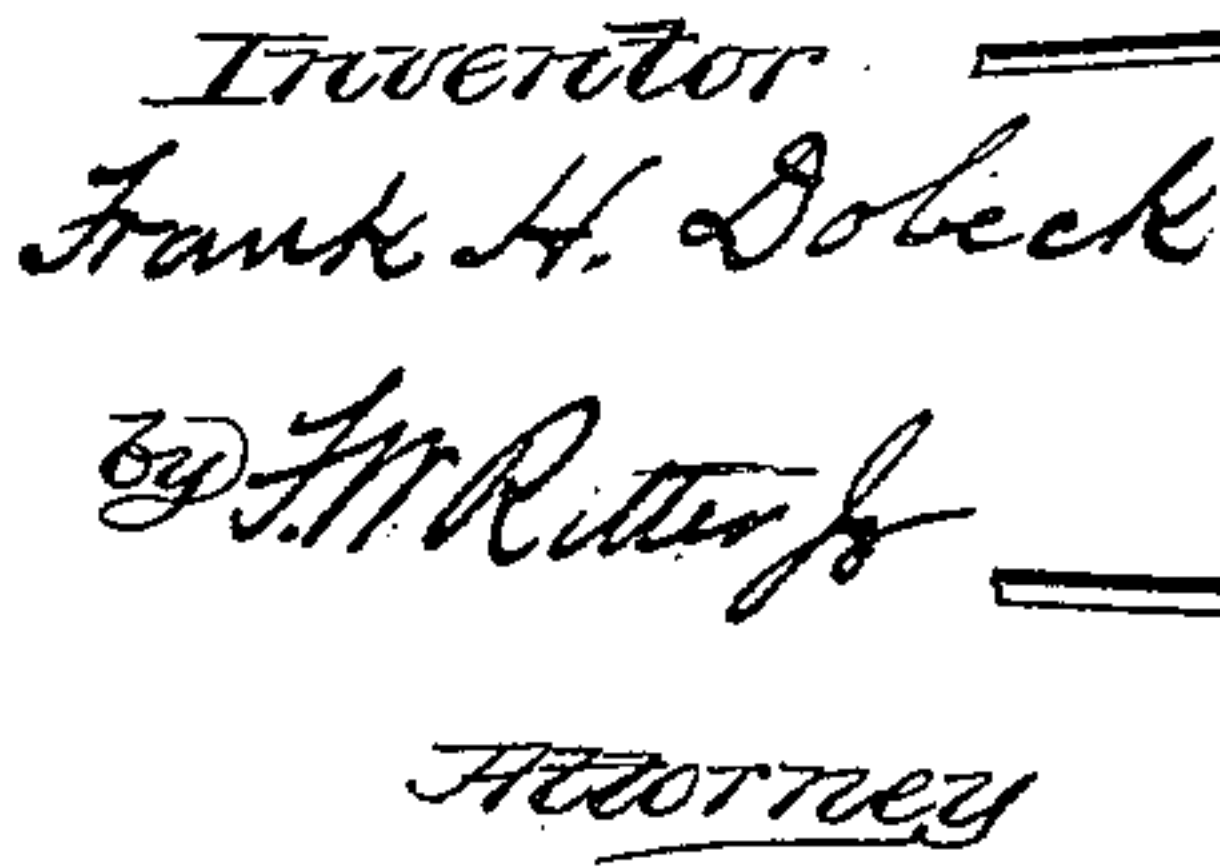 Inventor
Frank H. Dobeck
by F. W. Ritter Jr
Attorney